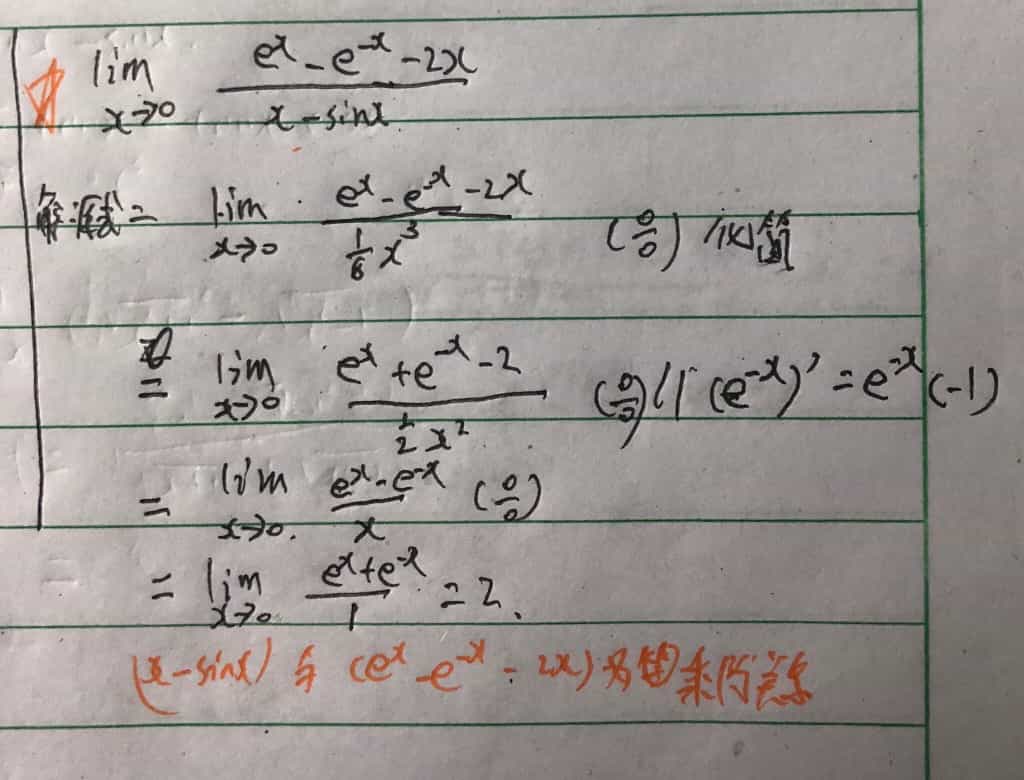 lim x→0 (e^x - e^-x - 2x)/(x - sinx)
解:原式 = lim x→0 (e^x - e^-x - 2x)/(1/6 x^3) (0/0)
= lim x→0 (e^x + e^-x - 2)/(1/2 x^2) (0/0) (e^-x)' = e^-x (-1)
= lim x→0. (e^x - e^-x)/x (0/0)
= lim x→0 (e^x + e^-x)/1 = 2.
(x - sinx) 与 (e^x - e^-x - 2x) 为 乘除关系